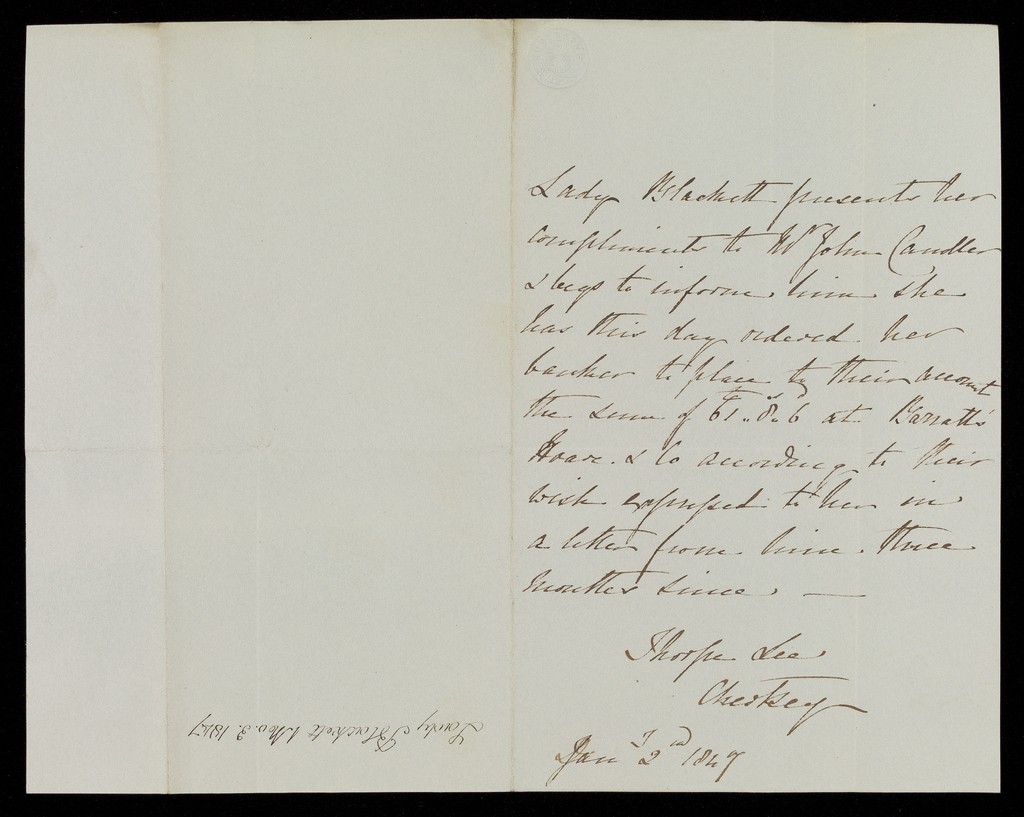 Lady Blackett presents her
compliments to Mr John Candler
& begs to inform him she
has this day ordered her
banker to place to their account
the sum of £61„8s„6d at Barnatts
Hoare & Co according to their
wish expressed to her in
a letter from him three
months since —
Thorpe Lee
Chertsey
Jany 2nd 1847
Lady Blackett 1 Mo. 3. 1847